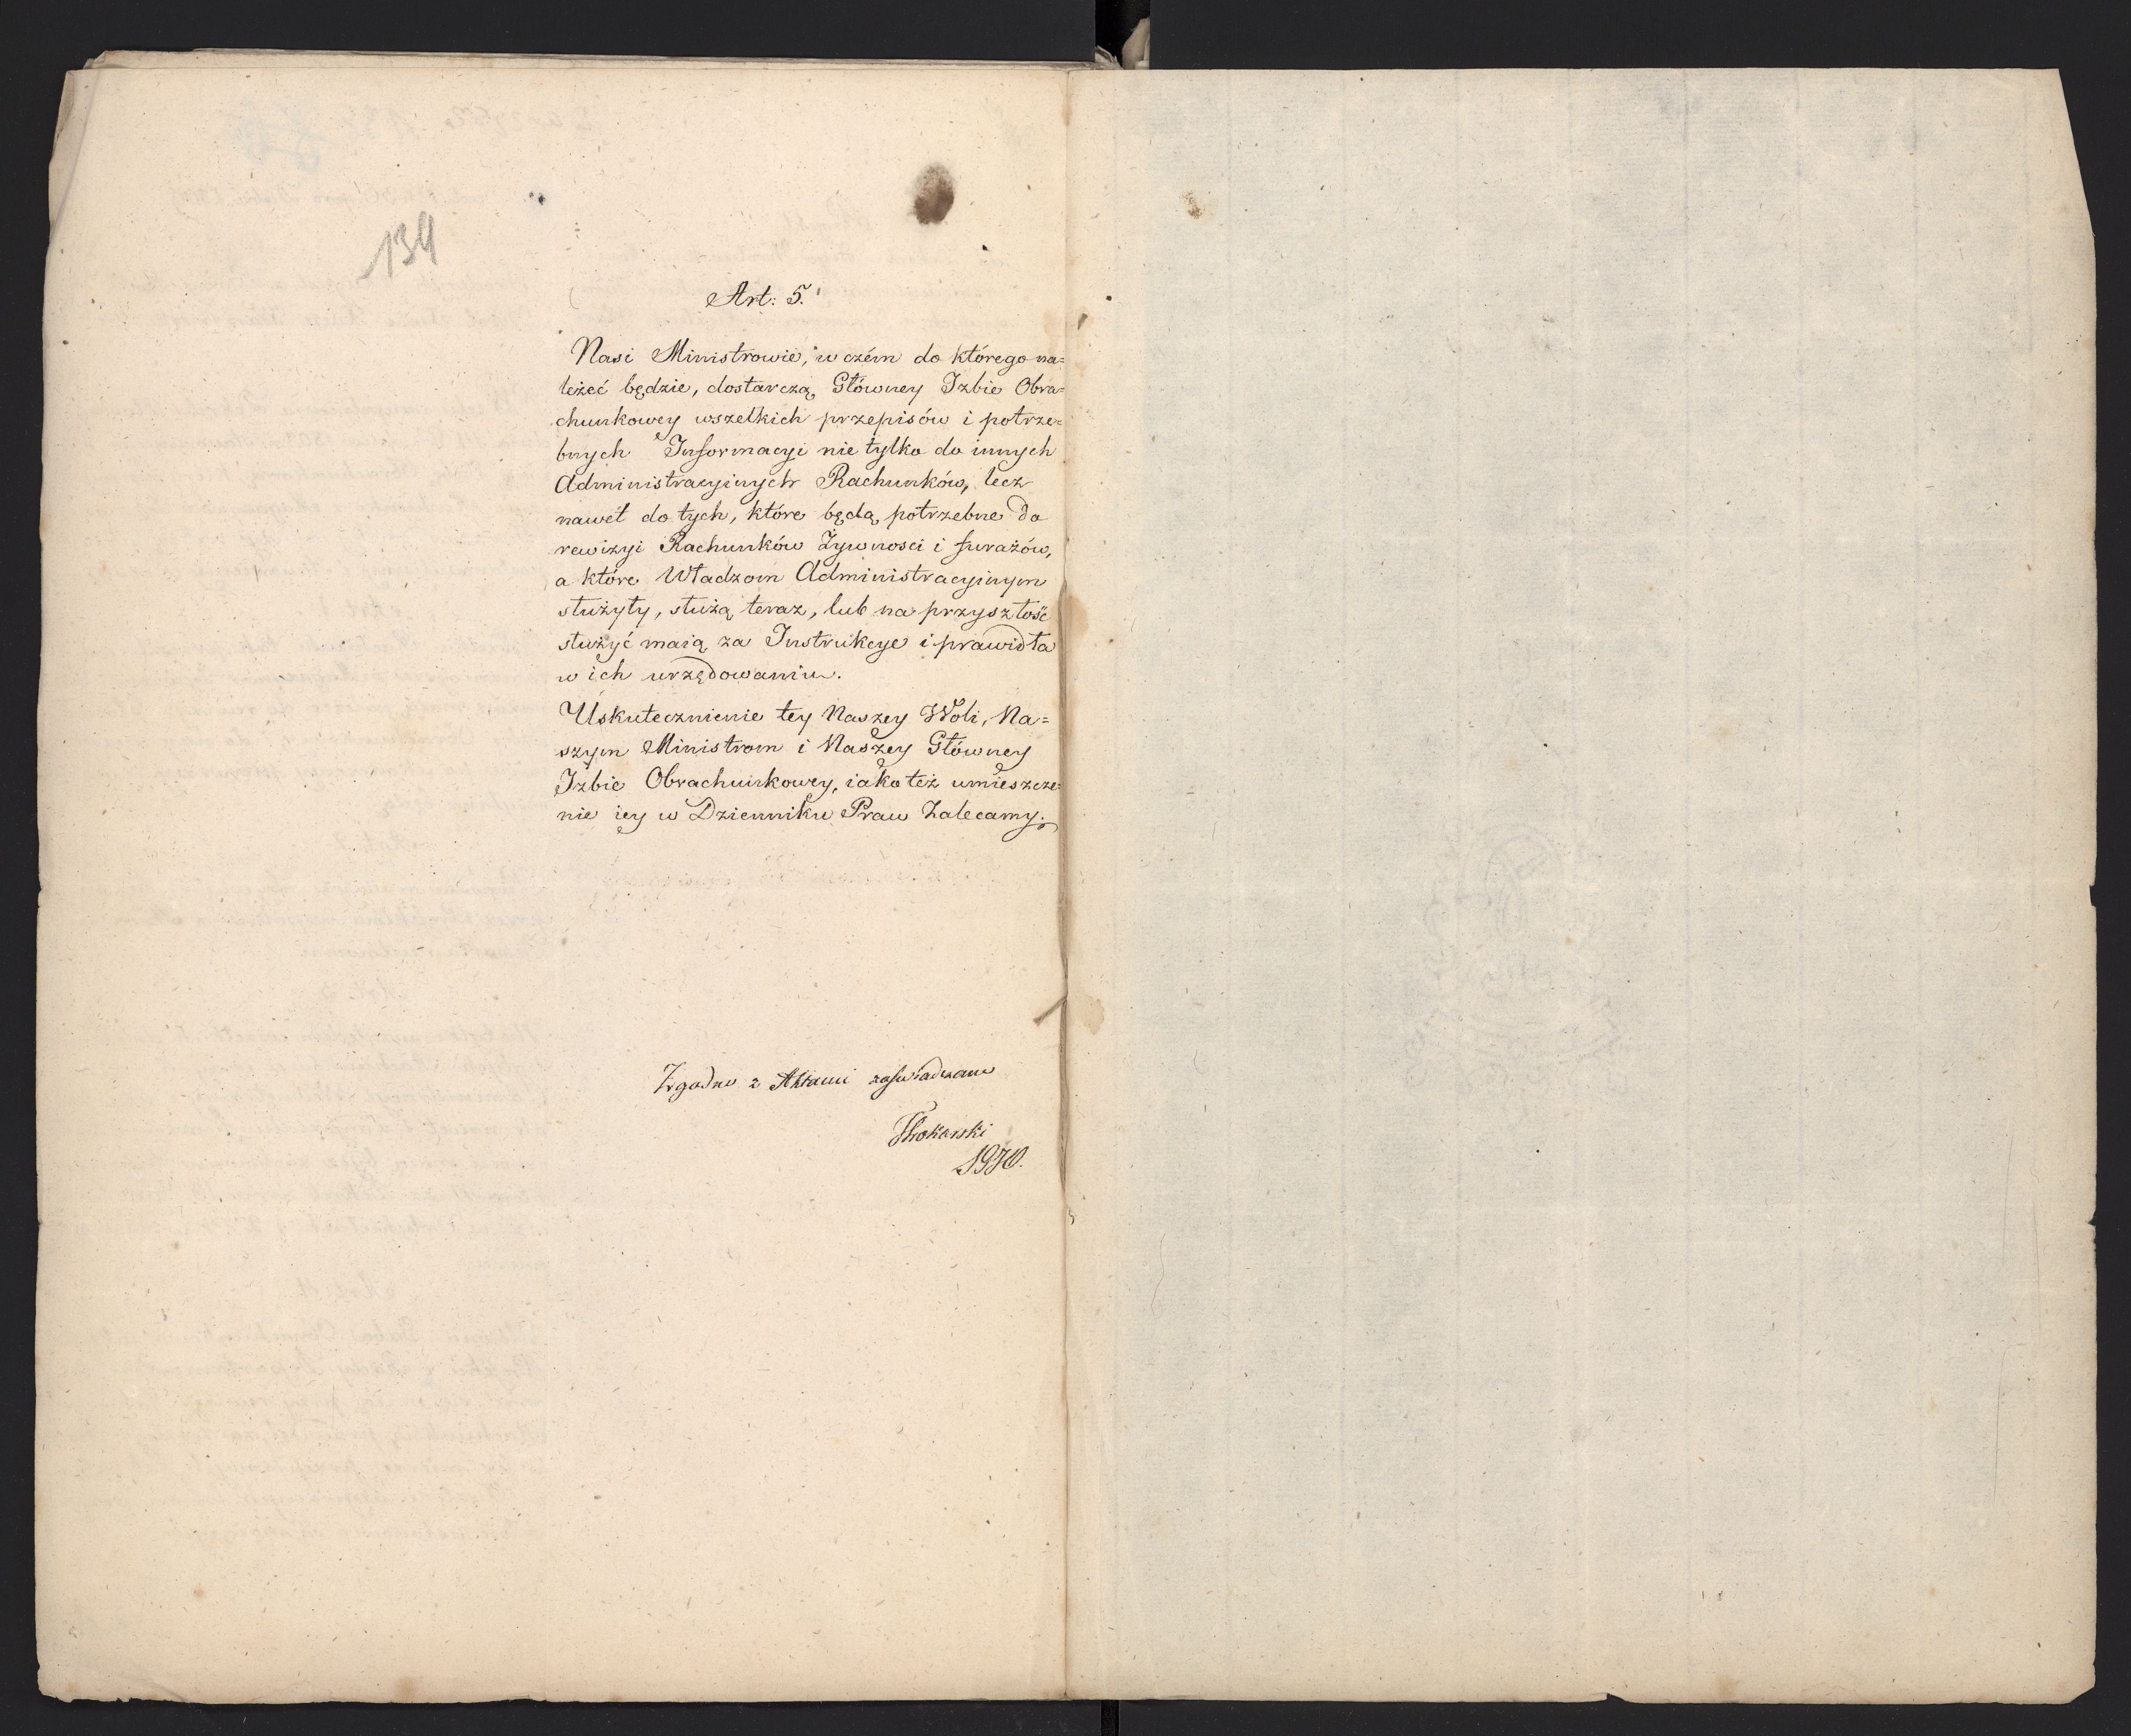 134
Art: 5.
Nasi Ministrowie, w czém do którego na=
leżeć będzie, dostarczą Główney Izbie Obra=
chunkowey wszelkich przepisów i potrze=
bnych Informacyi nie tylko do innych
Administracyinych Rachunków, lecz
nawet do tych, które będą potrzebne do
rewizyi Rachunków Żywnosci i furażów,
a które Władzom Administracyinym
służyły, służą teraz, lub na przyszłość
służyć maią za Instrukcye i prawidła
w ich urzędowaniu.
Uskutecznienie tey Naszey Woli, Na=
szym Ministrom i Naszey Główney
Izbie Obrachunkowey, iako też umieszcze=
nie iey w Dzienniku Praw Zalecamy.
Zgodno z Aktami zaswiadczam